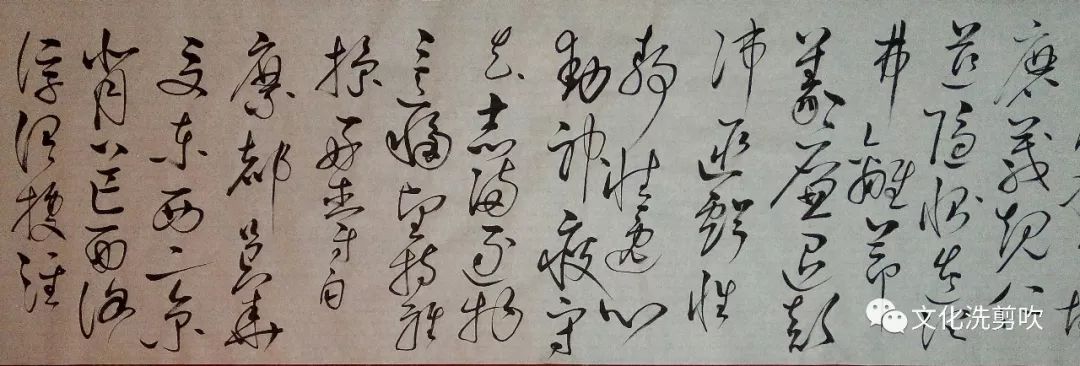 磨箴規仁
慈隱惻造次
弗離節
義廉退顛
沛匪虧性
靜情逸心
動神疲守
真志滿逐物
意移堅持雅
操好爵自
縻都邑華
夏東西二京
背芒面洛
浮渭據涇
文化洗剪吹